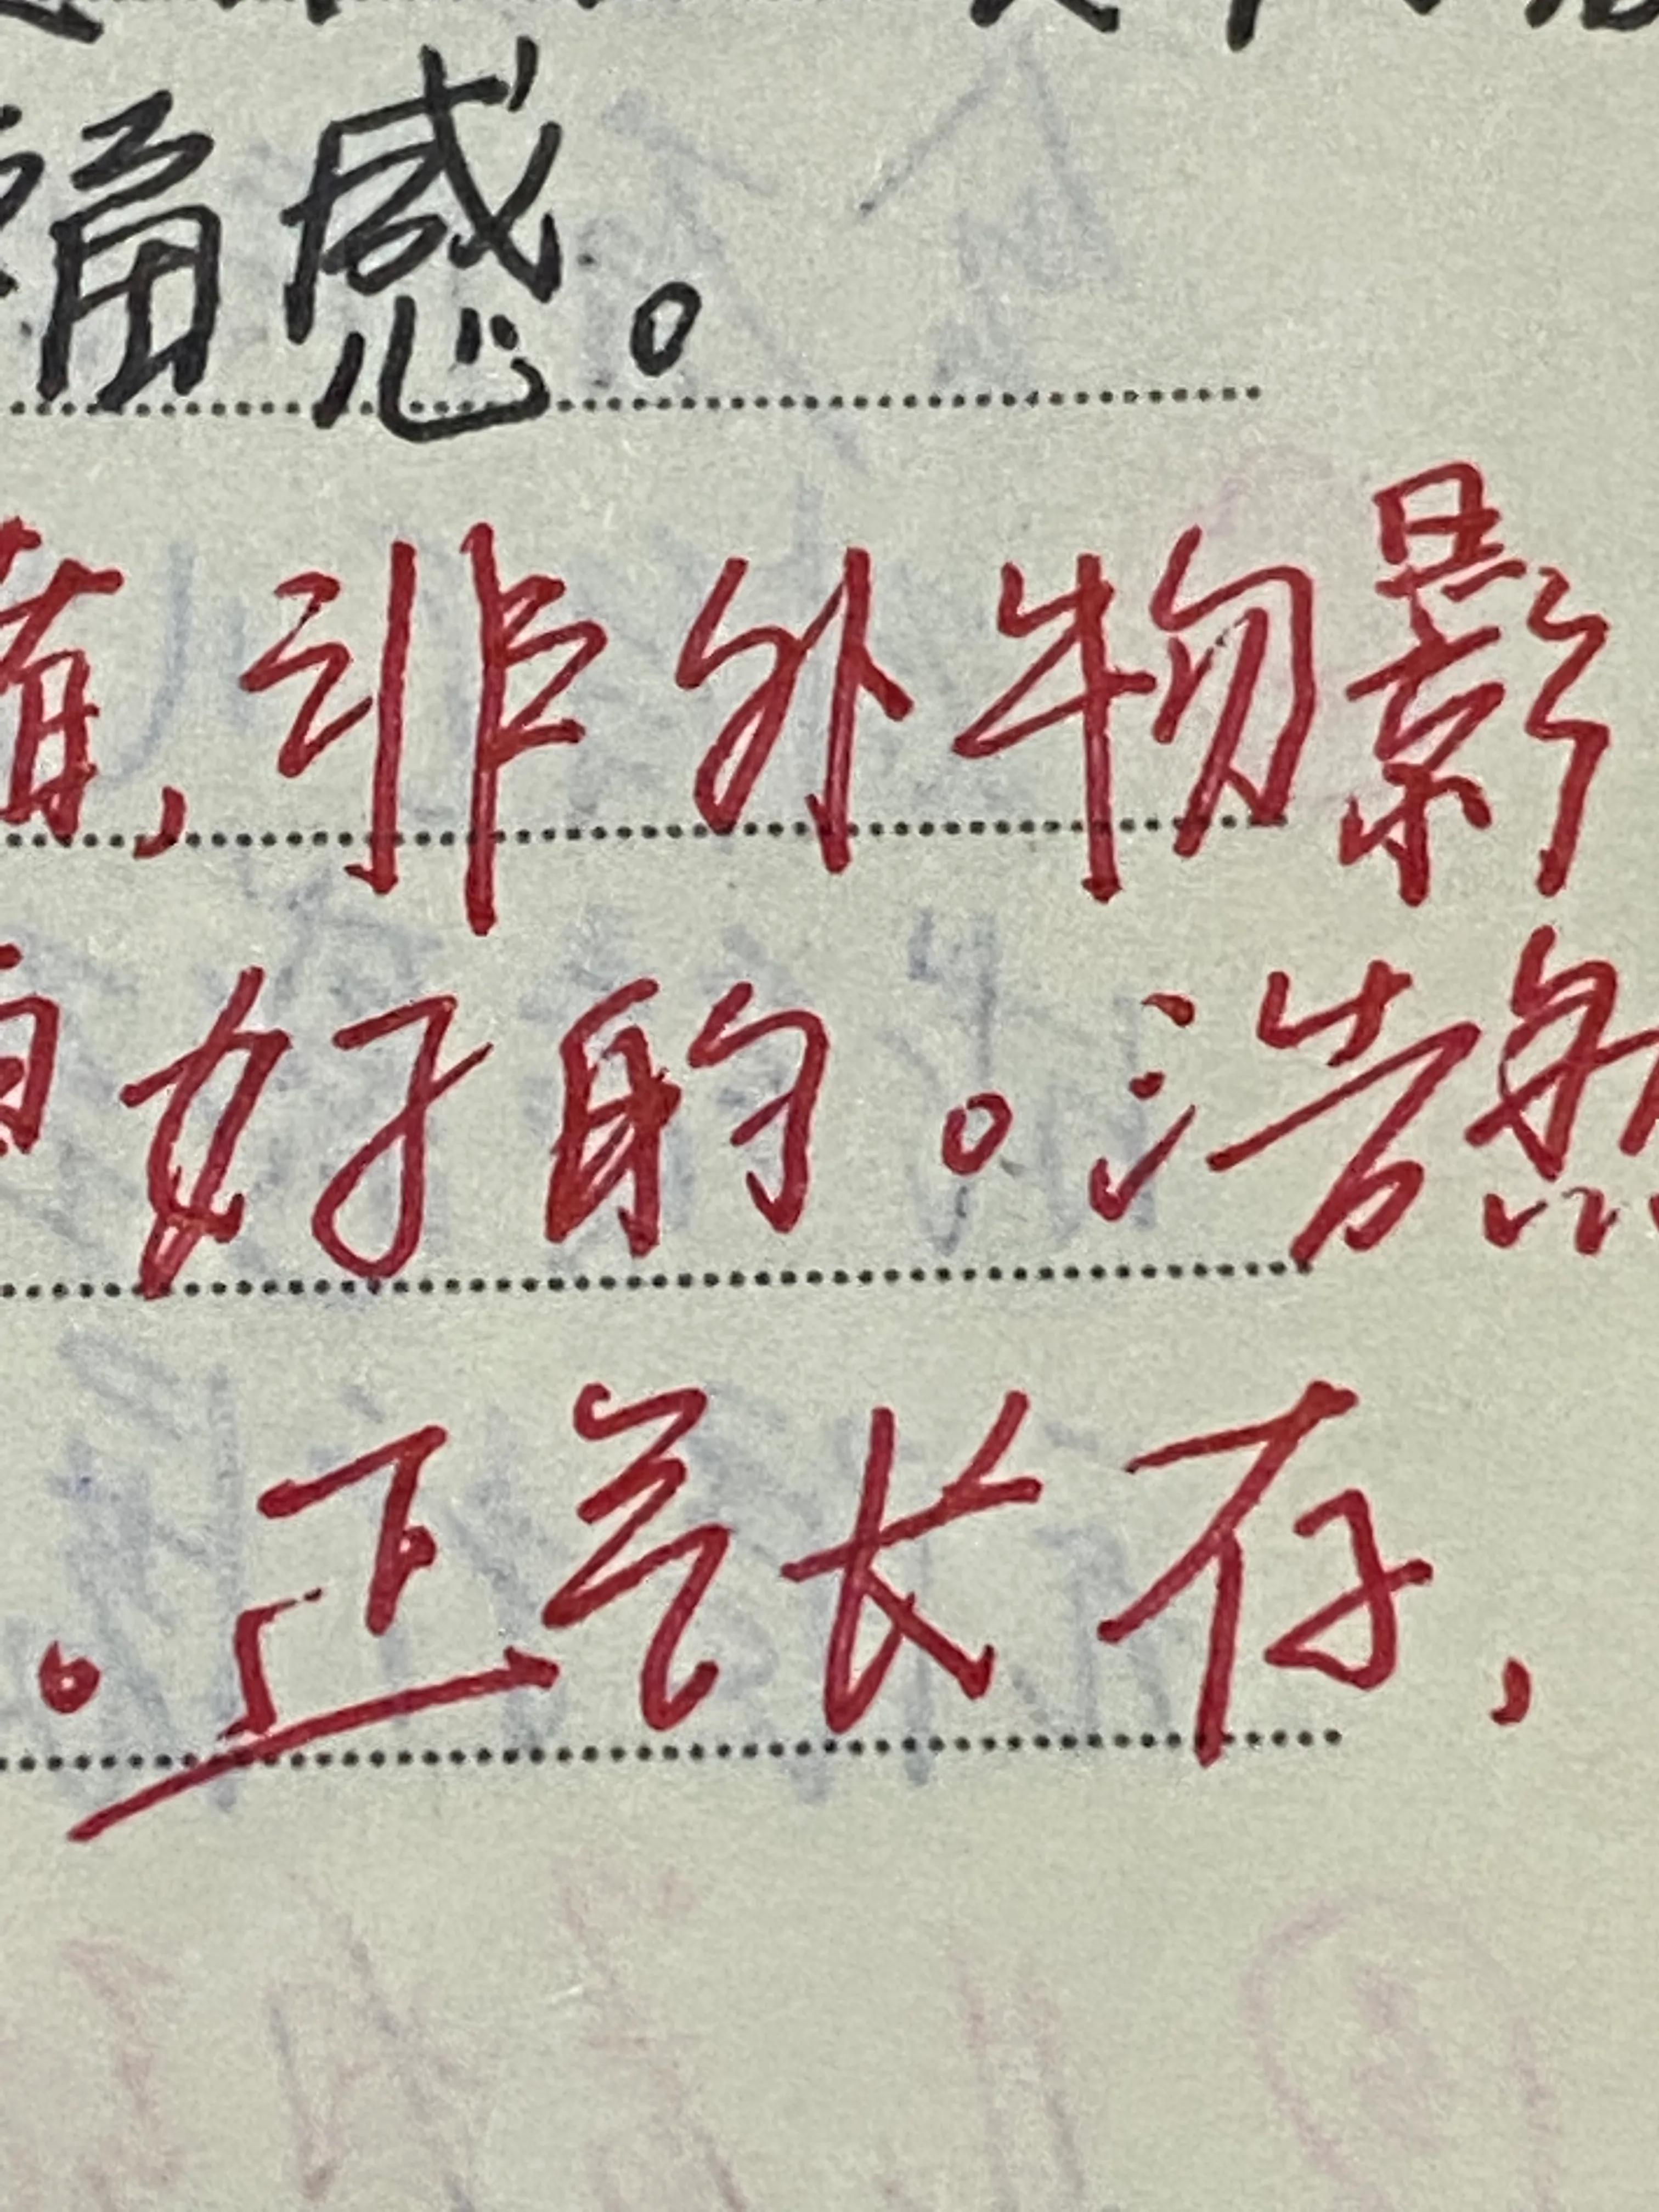 痛感。
有,非外物影
好的。浩然
。正气长存,